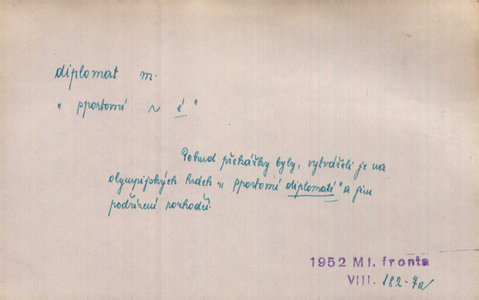 diplomat m.
„ sportovní ~ é "
Pokud překážky byly, vytvářeli je na
olympijských hrách „ sportovní diplomaté " a jim
podřízení rozhodčí.
1952 Ml. fronta
VIII. 182-7a